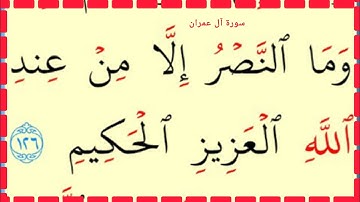 سورة آل عمران
وَمَا ٱلنَّصۡرُ إِلَّا مِنۡ عِندِ
ٱللَّهِ ٱلۡعَزِيزِ ٱلۡحَكِيمِ ١٢٦